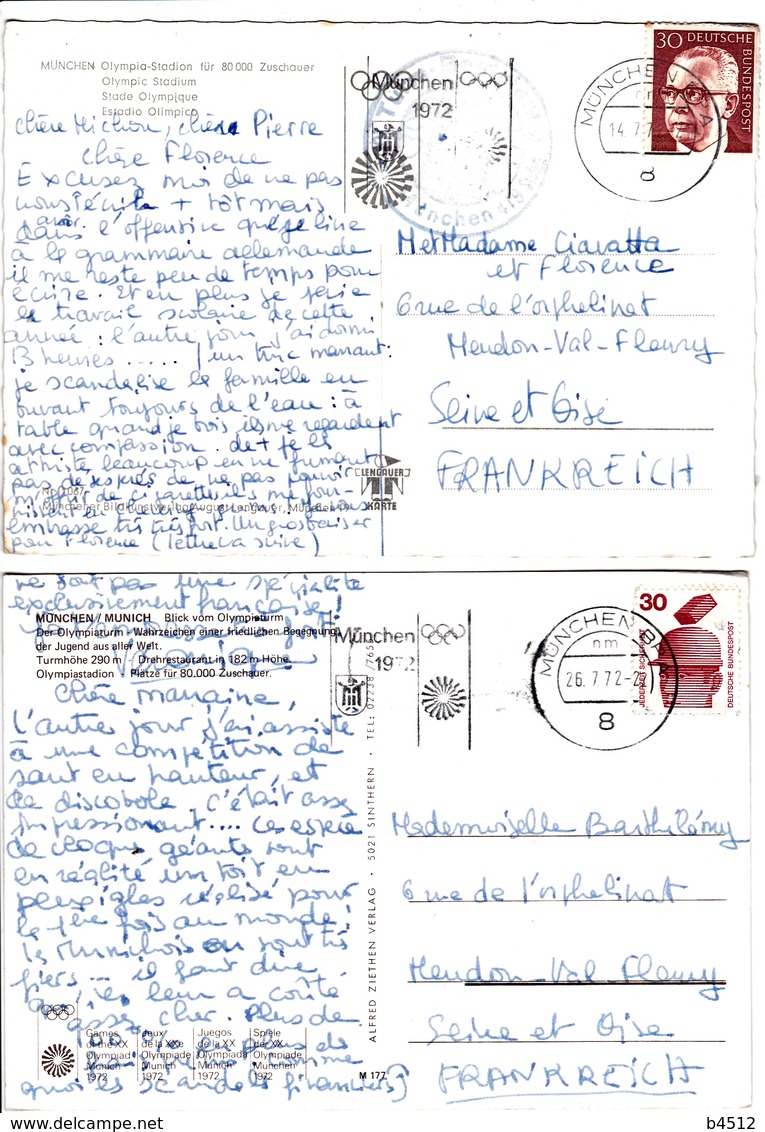 MÜNCHEN Olympia-Stadion für 80 000 Zuschauer
Olympic Stadium
Stade Olympique
Estadio Olimpico
Chère Michou, chère Pierre
Chère Florence
Excusez moi de ne pas
vous + tôt mais
dans l'offensive que je livre
à la grammaire allemande
il me reste peu de temps pour
écrire. Et en plus je
le travail scolaire de cette
année : l'autre jour j'ai dormi
13 heures ..... un truc marrant :
je scandalise la famille en
buvant toujours de l'eau : à
table quand je bois ils me regardent
avec compassion. de + je les
attriste beaucoup en ne fumant
pas désespérés de ne pas pouvoir
de cigarettes ils me
Münchener Bildkunstverlag August Lengauer, München
embrasse très très fort. Un gros baiser
pour Florence (lettre la suive)
LENGAUER
KARTE
München
1972
MÜNCHEN
14.7.7
a
30 DEUTSCHE
BUNDESPOST
M et Madame Ciavatta
et Florence
6 rue de l'orphelinat
Meudon-Val-Fleury
Seine et Oise
FRANKREICH
ne sont pas une spécialité
exclusivement française !
MÜNCHEN / MUNICH Blick vom Olympiaturm
Der Olympiaturm - Wahrzeichen einer friedlichen Begegnung
der Jugend aus aller Welt.
Turmhöhe 290 m - Drehrestaurant in 182 m Höhe.
Olympiastadion - Plätze für 80.000 Zuschauer.
Chère marraine,
L'autre jour j'ai assisté
à une compétition de
saut en hauteur, et
de discobole. C'était assez
impressionant.... Ces espèce
de cloques géantes sont
en réalité un toit en
plexiglas réalisé pour
la 1ère fois au monde ;
les Munichois en sont très
fiers... il faut dire
que leur a coûté
assez cher. Plus de
quoi les scandales financiers
Games
of the XX
Olympiad
Munich
1972
Jeux
de la XXe
Olympiade
Munich
1972
Juegos
de la XX
Olympiada
Munich
1972
Spiele
der XX.
Olympiade
München
1972
M 177
ALFRED ZIETHEN VERLAG · 5021 SINTHERN · TEL: 02238 /765
München
1972
MÜNCHEN
nm
26.7.72-2
8
30
JEDERZEIT SICHERHEIT
DEUTSCHE BUNDESPOST
Mademoiselle Barthélémy
6 rue de l'orphelinat
Meudon-Val-Fleury
Seine et Oise
FRANKREICH
b4512